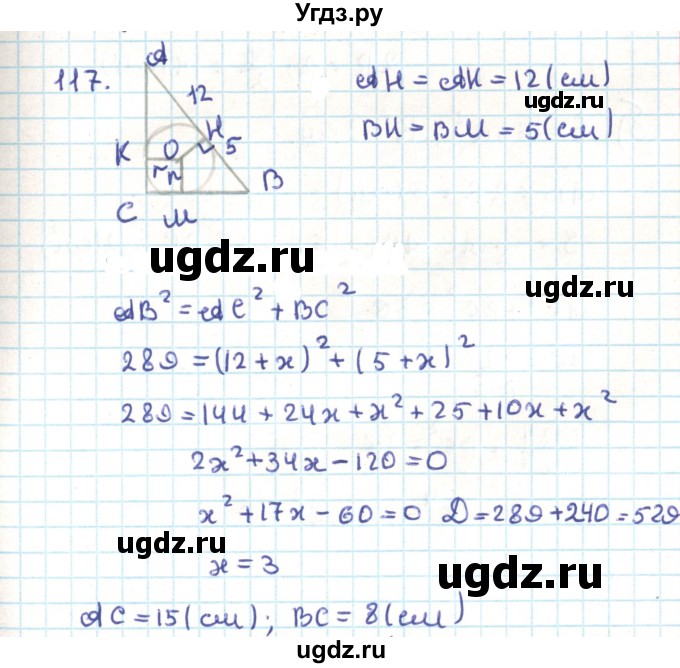 Угдз.ру
117.
A
12
H
K O 5
r r B
C M
AH = AK = 12 (см)
ugdz.ru
BH = BM = 5 (см)
ugdz.ru
ugdz.ru
AB² = AC² + BC²
289 = (12 + x)² + (5 + x)²
289 = 144 + 24x + x² + 25 + 10x + x²
2x² + 34x - 120 = 0
x² + 17x - 60 = 0 D = 289 + 240 = 529
ugdz.ru
x = 3
ugdz.ru
AC = 15 (см); BC = 8 (см)
ugdz.ru